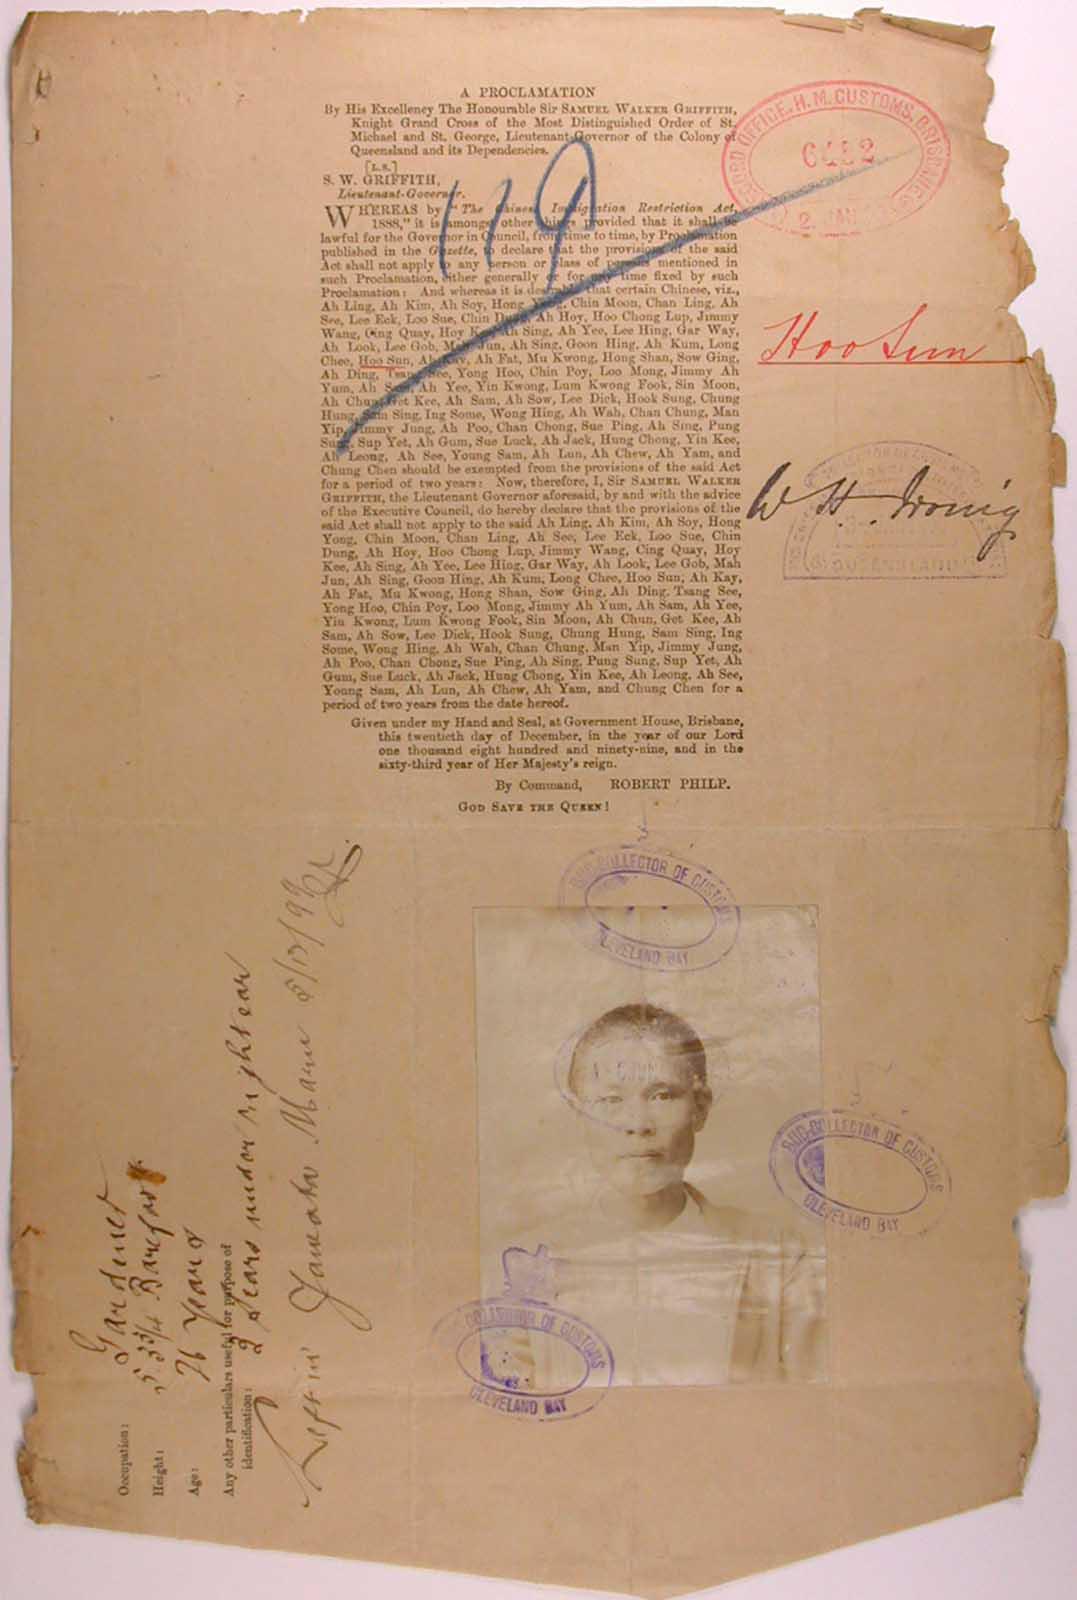 A PROCLAMATION
By His Excellency The Honourable Sir SAMUEL WALKER GRIFFITH,
Knight Grand Cross of the Most Distinguished Order of St.
Michael and St. George, Lieutenant-Governor of the Colony of
Queensland and its Dependencies.
[L.S.]
S. W. GRIFFITH,
Lieutenant-Governor.
WHEREAS by "The Chinese Immigration Restriction Act,
1888," it is amongst other things provided that it shall be
lawful for the Governor in Council, from time to time, by Proclamation
published in the Gazette, to declare that the provisions of the said
Act shall not apply to any person or class of persons mentioned in
such Proclamation, either generally or for any time fixed by such
Proclamation: And whereas it is desirable that certain Chinese, viz.,
Ah Ling, Ah Kim, Ah Soy, Hong Yong, Chin Moon, Chan Ling, Ah
See, Lee Eck, Loo Sue, Chin Dung, Ah Hoy, Hoo Chong Lup, Jimmy
Wang, Cing Quay, Hoy Kee, Ah Sing, Ah Yee, Lee Hing, Gar Way,
Ah Look, Lee Gob, Mah Jun, Ah Sing, Goon Hing, Ah Kum, Long
Chee, Hoo Sun, Ah Kay, Ah Fat, Mu Kwong, Hong Shan, Sow Ging,
Ah Ding, Tsang See, Yong Hoo, Chin Poy, Loo Mong, Jimmy Ah
Yum, Ah Sam, Ah Yee, Yin Kwong, Lum Kwong Fook, Sin Moon,
Ah Chun, Get Kee, Ah Sam, Ah Sow, Lee Dick, Hook Sung, Chung
Hung, Sam Sing, Ing Some, Wong Hing, Ah Wah, Chan Chung, Man
Yip, Jimmy Jung, Ah Poo, Chan Chong, Sue Ping, Ah Sing, Pung
Sung, Sup Yet, Ah Gum, Sue Luck, Ah Jack, Hung Chong, Yin Kee,
Ah Leong, Ah See, Young Sam, Ah Lun, Ah Chew, Ah Yam, and
Chung Chen should be exempted from the provisions of the said Act
for a period of two years: Now, therefore, I, Sir SAMUEL WALKER
GRIFFITH, the Lieutenant Governor aforesaid, by and with the advice
of the Executive Council, do hereby declare that the provisions of the
said Act shall not apply to the said Ah Ling, Ah Kim, Ah Soy, Hong
Yong, Chin Moon, Chan Ling, Ah See, Lee Eck, Loo Sue, Chin
Dung, Ah Hoy, Hoo Chong Lup, Jimmy Wang, Cing Quay, Hoy
Kee, Ah Sing, Ah Yee, Lee Hing, Gar Way, Ah Look, Lee Gob, Mah
Jun, Ah Sing, Goon Hing, Ah Kum, Long Chee, Hoo Sun, Ah Kay,
Ah Fat, Mu Kwong, Hong Shan, Sow Ging, Ah Ding, Tsang See,
Yong Hoo, Chin Poy, Loo Mong, Jimmy Ah Yum, Ah Sam, Ah Yee,
Yin Kwong, Lum Kwong Fook, Sin Moon, Ah Chun, Get Kee, Ah
Sam, Ah Sow, Lee Dick, Hook Sung, Chung Hung, Sam Sing, Ing
Some, Wong Hing, Ah Wah, Chan Chung, Man Yip, Jimmy Jung,
Ah Poo, Chan Chong, Sue Ping, Ah Sing, Pung Sung, Sup Yet, Ah
Gum, Sue Luck, Ah Jack, Hung Chong, Yin Kee, Ah Leong, Ah See,
Young Sam, Ah Lun, Ah Chew, Ah Yam, and Chung Chen for a
period of two years from the date hereof.
Given under my Hand and Seal, at Government House, Brisbane,
this twentieth day of December, in the year of our Lord
one thousand eight hundred and ninety-nine, and in the
sixty-third year of Her Majesty's reign.
By Command, ROBERT PHILP.
GOD SAVE THE QUEEN!
119
RECORD OFFICE. H.M. CUSTOMS. BRISBANE
6482
2. JAN
Hoo Sun
W H
QUEENSLAND
SUB-COLLECTOR OF CUSTOMS
CLEVELAND BAY
SUB-COLLECTOR OF CUSTOMS
CLEVELAND BAY
SUB-COLLECTOR OF CUSTOMS
CLEVELAND BAY
Occupation: Gardener
Height: 5 3 3/4 Barefoot
Age: 26 Years
Any other particulars useful for purpose of
identification: 2 Scars under right ear
Left in Yawata Maru